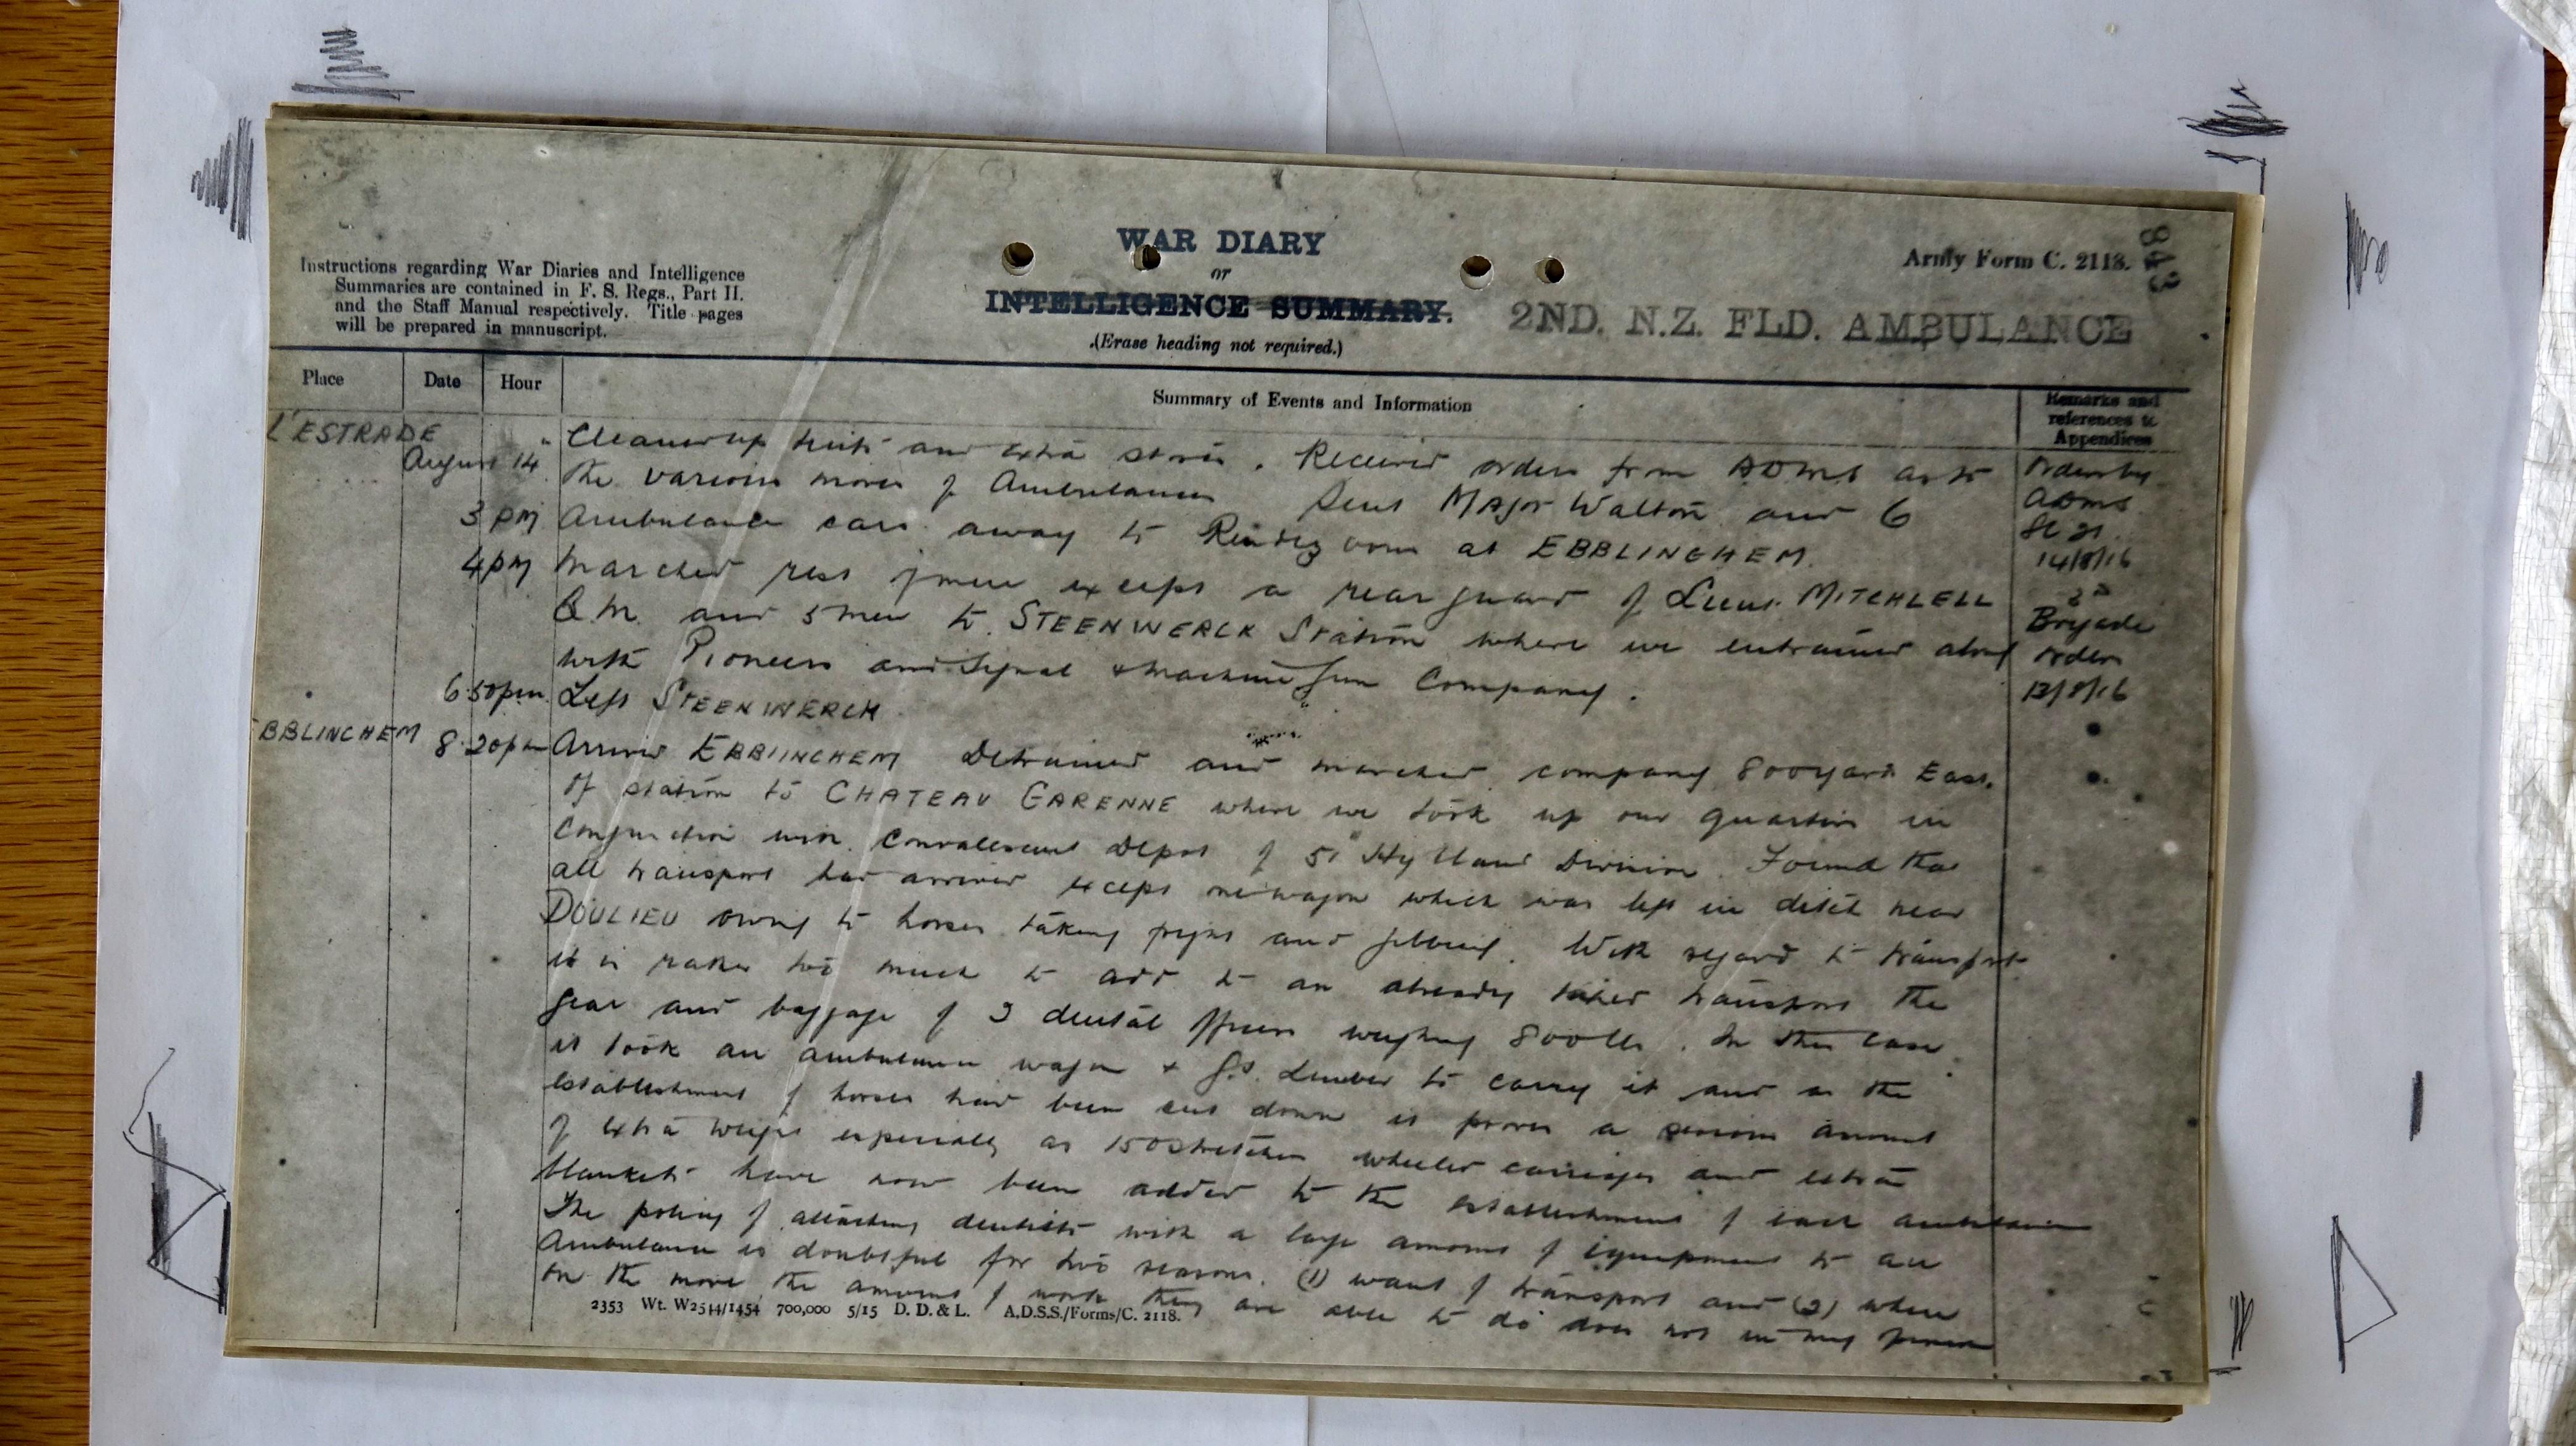 843
Army Form C. 2118.
WAR DIARY
or
INTELLIGENCE SUMMARY.
(Erase heading not required.)
2ND. N.Z. FLD. AMBULANCE
Instructions regarding War Diaries and Intelligence
Summaries are contained in F. S. Regs., Part II.
and the Staff Manual respectively. Title pages
will be prepared in manuscript.
Place Date Hour Summary of Events and Information Remarks and references to Appendices
L'ESTRADE
August 14 " Cleaned up huts and extra stores. Received orders from ADMS as to
the various moves of Ambulances Sent Major Walton and 6
3 pm Ambulance cars away to Rendezvous at EBBLINGHEM.
4 pm Marched rest of men except a rear guard of Lieut. MITCHLELL
Q.M. and 5 men to STEENWERCK Station where we entrained along
with Pioneers and Signal & Machine Gun Company.
6.50 pm Left STEENWERCK
EBBLINCHEM 8.20 pm Arrived EBBLINCHEM Detrained and marched company 800 yards East.
of station to CHATEAU GARENNE where we took up our quarters in
conjunction with Convalescent Depot of 51 Highland Division. Found that
all transport had arrived except one wagon which was left in ditch near
DOULIEU owing to horses taking fright and jibbing. With regard to transport
it is rather too much to add to an already taxed transport the
gear and baggage of 3 dental officers weighing 800 lbs. In this case
it took an ambulance wagon & G.S. Limber to carry it and as the
establishment of horses had been cut down it proves a serious amount
of extra weight especially as 150 stretchers wheeled carriages and extra
blankets have now been added to the establishment of each ambulance
The policy of attaching dentists with a large amount of equipment to an
Ambulance is doubtful for two reasons. (1) want of transport and (2) when
on the move the amount of work they are able to do does not in my opinion
Orders by
ADMS
14/8/16
2nd
Brigade
order
13/8/16
2353 Wt. W2544/1454 700,000 5/15 D. D. & L. A.D.S.S./Forms/C. 2118.